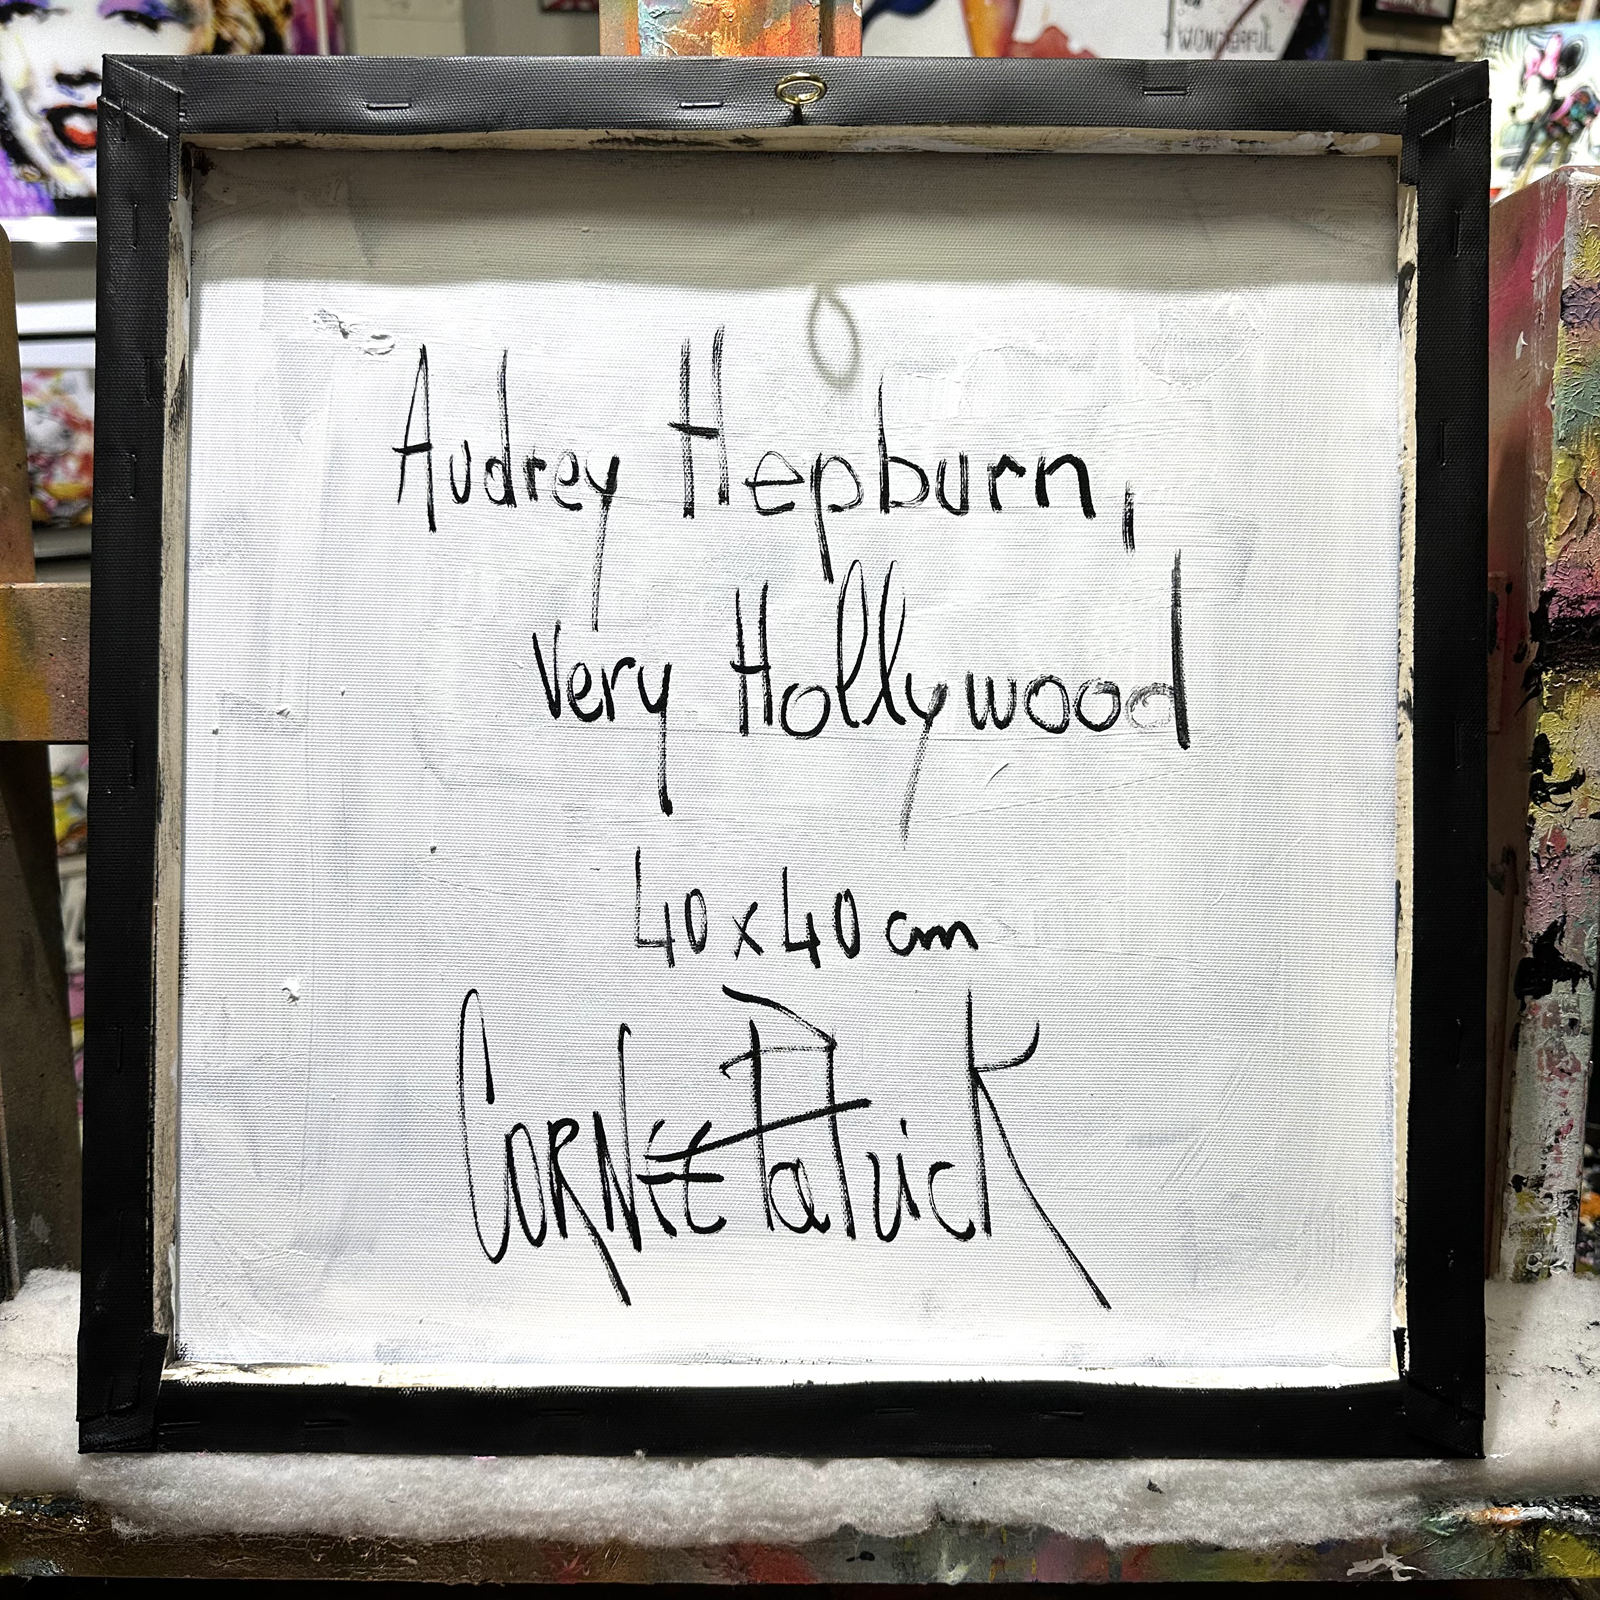 Audrey Hepburn,
Very Hollywood
40 x 40 cm
CORNÉE Patrick